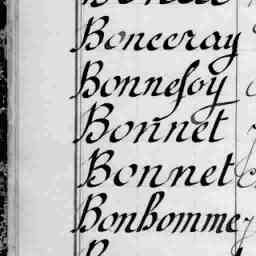 Bonceray
Bonnefoy
Bonnet
Bonnet
Bonhomme